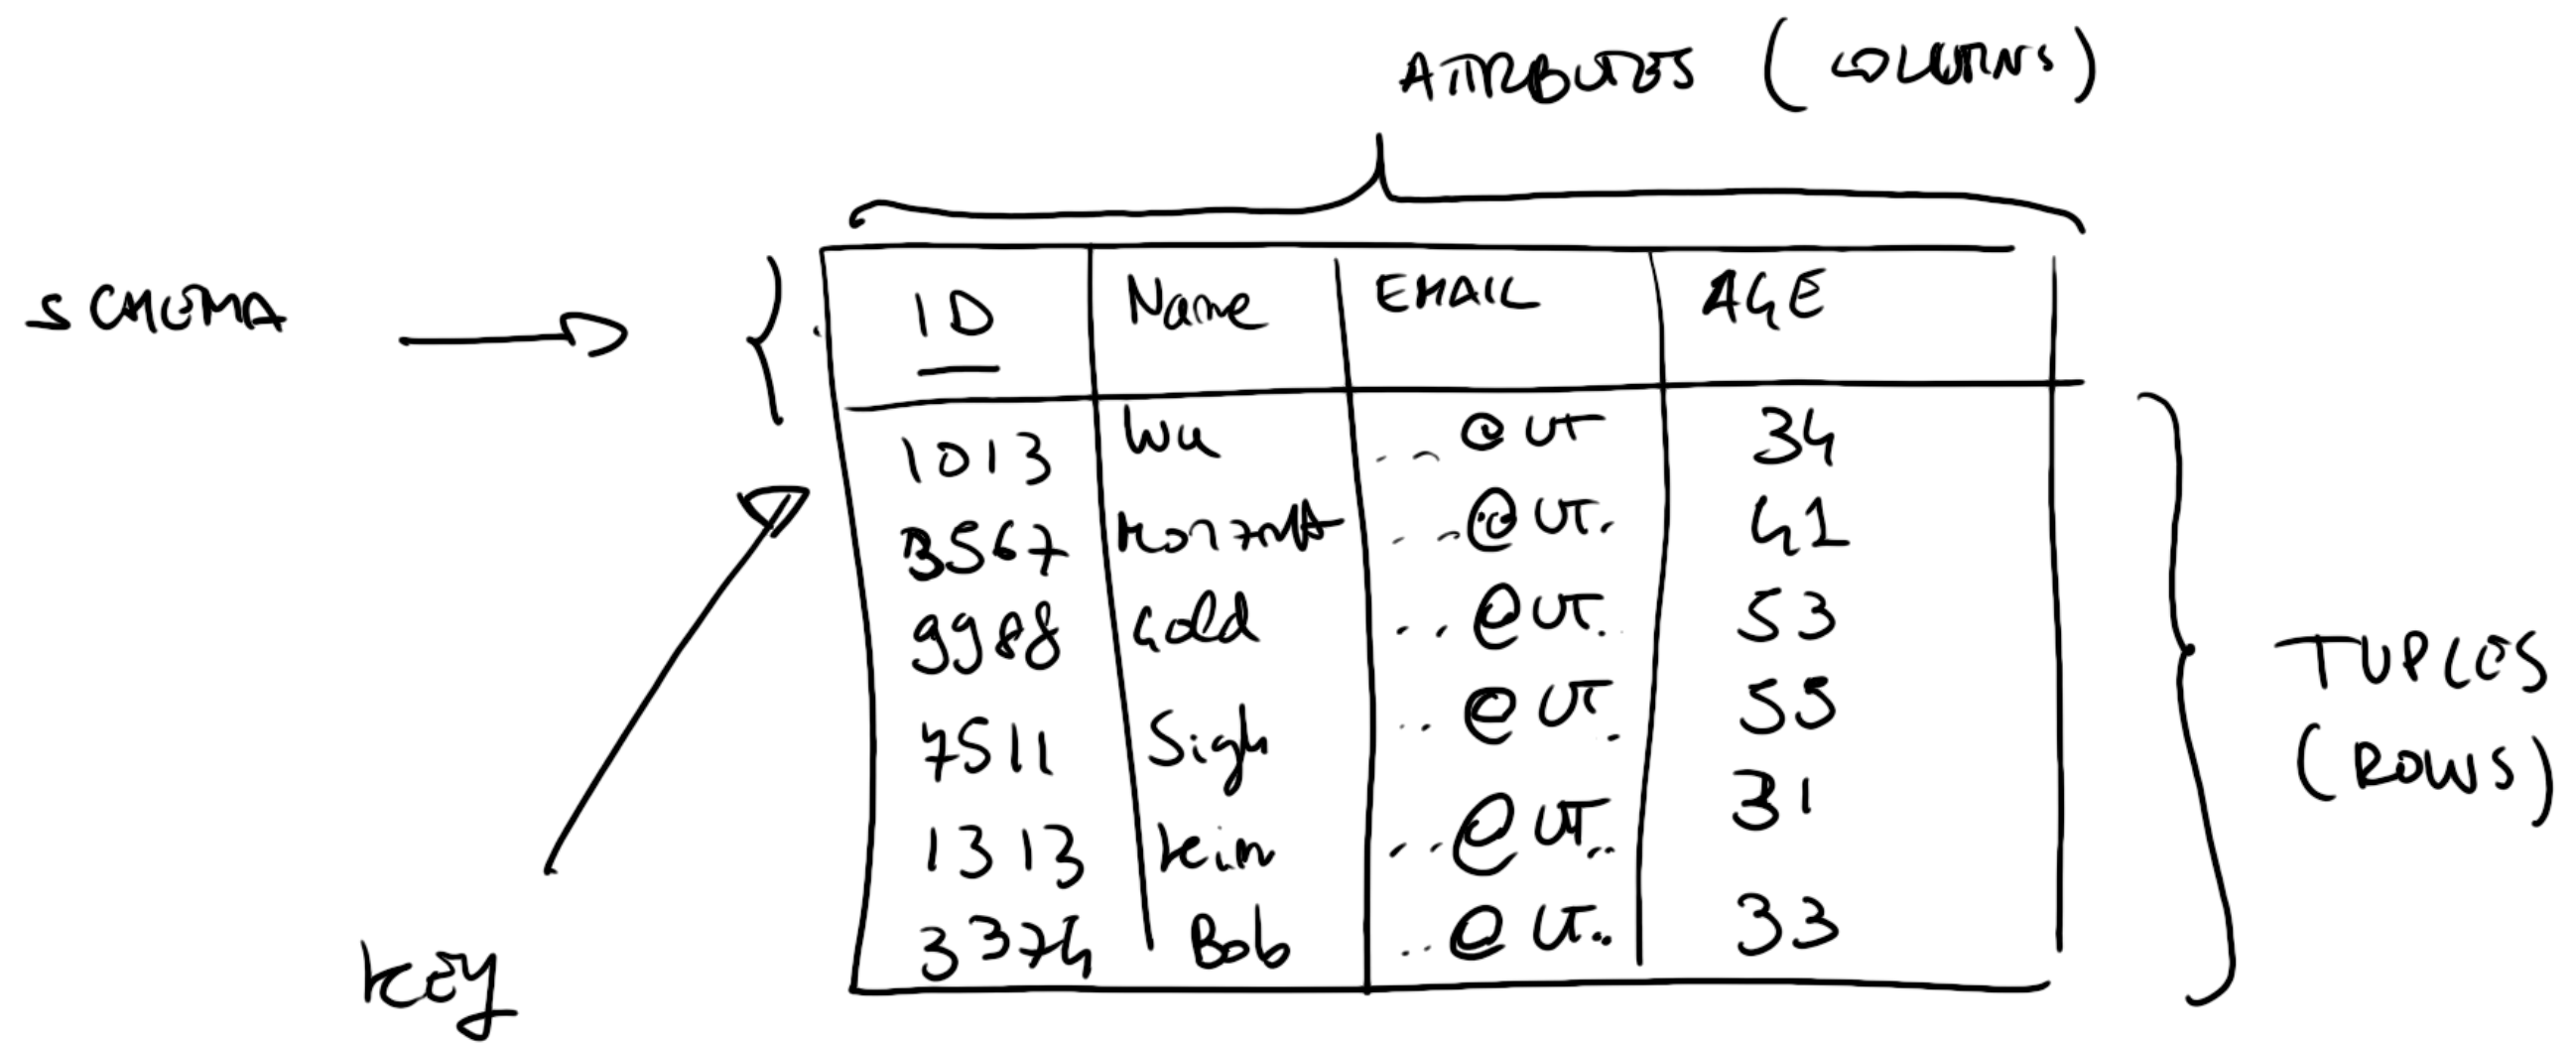 ATTRIBUTES (COLUMNS)
SCHEMA
ID Name EMAIL AGE
1013 Wu ..@UT 34
3567 ..@UT. 41
9988 Gold ..@UT. 53
7511 Sigh ..@UT. 55
1313 Kim ..@UT.. 31
3374 Bob ..@UT.. 33
TUPLES
(ROWS)
KEY